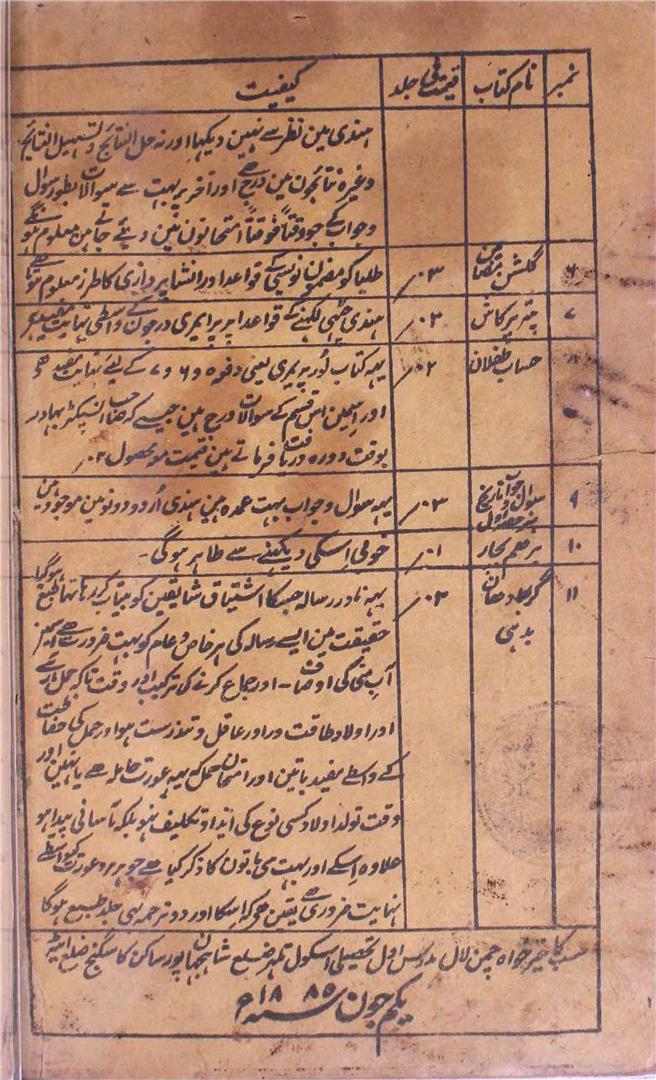 نمبر نام کتاب قیمت فی جلد کیفیت
ہندی مین نظر سے نہین دیکہا اور نہ حل النتایج و تسہیل النتایج
وغیرہ نتائجون مین درج ہے اور آخر پر بہت سے سوالات بطور سوال
وجواب کے جو وقتاً فوقتاً امتحانون مین دیئے جاتے ہین معلوم ہونگے
۶ گلشن مضامین ۰۳/ طلبا کو مضمون نویسی کے قواعد اور انشا پردازی کا طرز معلوم ہوتا ہے
۷ پتر پرکاش ۰۲/ ہندی چٹہی لکہنے کے قواعد اپر پرایمری درجون کے واسطی نہایت مفید ہے
۸ حساب طفلان ۰۲/ یہہ کتاب لور پریمری یعنی دفعہ ۵ و ۶ و ۷ کے لیئے نہایت مفید ہے
اور اسمین اس قسم کے سوالات درج ہین جیسے کہ صاحب انسپکٹر بہادر
بوقت دورہ دریافت فرماتے ہین قیمت مو محصول ۰۲/
۹ سوال و جواب تاریخ ۰۳/ یہہ سوال وجواب بہت عمدہ ہین ہندی اُردو دونو مین موجود ہین
۱۰ برھم بچار ۰۱/ خوبی اسکی دیکہنے سے ظاہر ہوگی -
۱۱ گربادھان بدہی ۰۲/ یہہ نادر رسالہ جسکا اشتیاق شایقین کو بیتاب کررہا تہا طبع ہوگیا
حقیقت مین ایسے رسالہ کی ہر خاص و عام کو بہت ضرورت ہے اسمین
آب منی کی اوصاف - اور جماع کرنے کی ترکیب اور وقت تاکہ حمل رہے
اور اولاد طاقت ور اور عاقل و تندرست ہو اور حمل کی حفاظت
کے واسطے مفید باتین اور امتحان حمل کہ یہہ عورت حاملہ ہے یا نہین اور
وقت تولد اولاد کسی نوع کی ایذا و تکلیف نہو بلکہ بآسانی پیدا ہو
علاوہ اسکے اور بہت سی باتون کا ذکر کیا ہے جو ہر مرد و عورت کیواسطے
نہایت ضروری ہے یقین ہے کہ اسکا اور دو ترجمہ بہی جلد طبع ہوگا
سب کا خیر خواہ چمن لال مدرس اول تحصیلی اسکول تلہر ضلع شاہجہانپور ساکن کاسگنج ضلع ایٹہ
یکم جون سنہ ۱۸۸۵ء